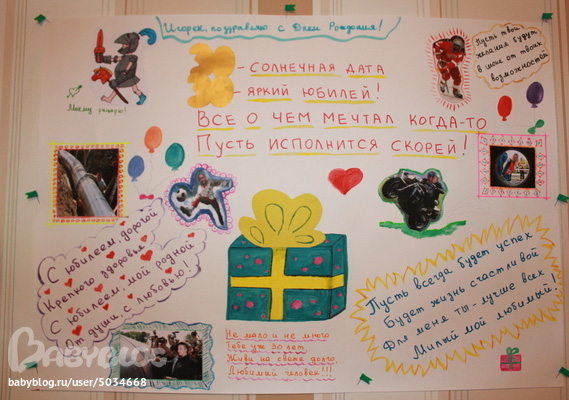 Игорек, поздравляю с Днем Рождения!
30 - СОЛНЕЧНАЯ ДАТА
- ЯРКИЙ ЮБИЛЕЙ!
ВСЕ О ЧЕМ МЕЧТАЛ КОГДА-ТО
ПУСТЬ ИСПОЛНИТСЯ СКОРЕЙ!
Пусть твои
желания будут
в шоке от твоих
возможностей
Моему рыцарю!
С юбилеем, дорогой
Крепкого здоровья
С юбилеем, мой родной
От души, с любовью!!
Не мало и не много
Тебе уж 30 лет
Живи на свете долго,
Любимый человек!!!
Пусть всегда будет успех
Будет жизнь счастливой
Для меня ты - лучше всех
Милый мой любимый!
BABYBLOG
babyblog.ru/user/5034668